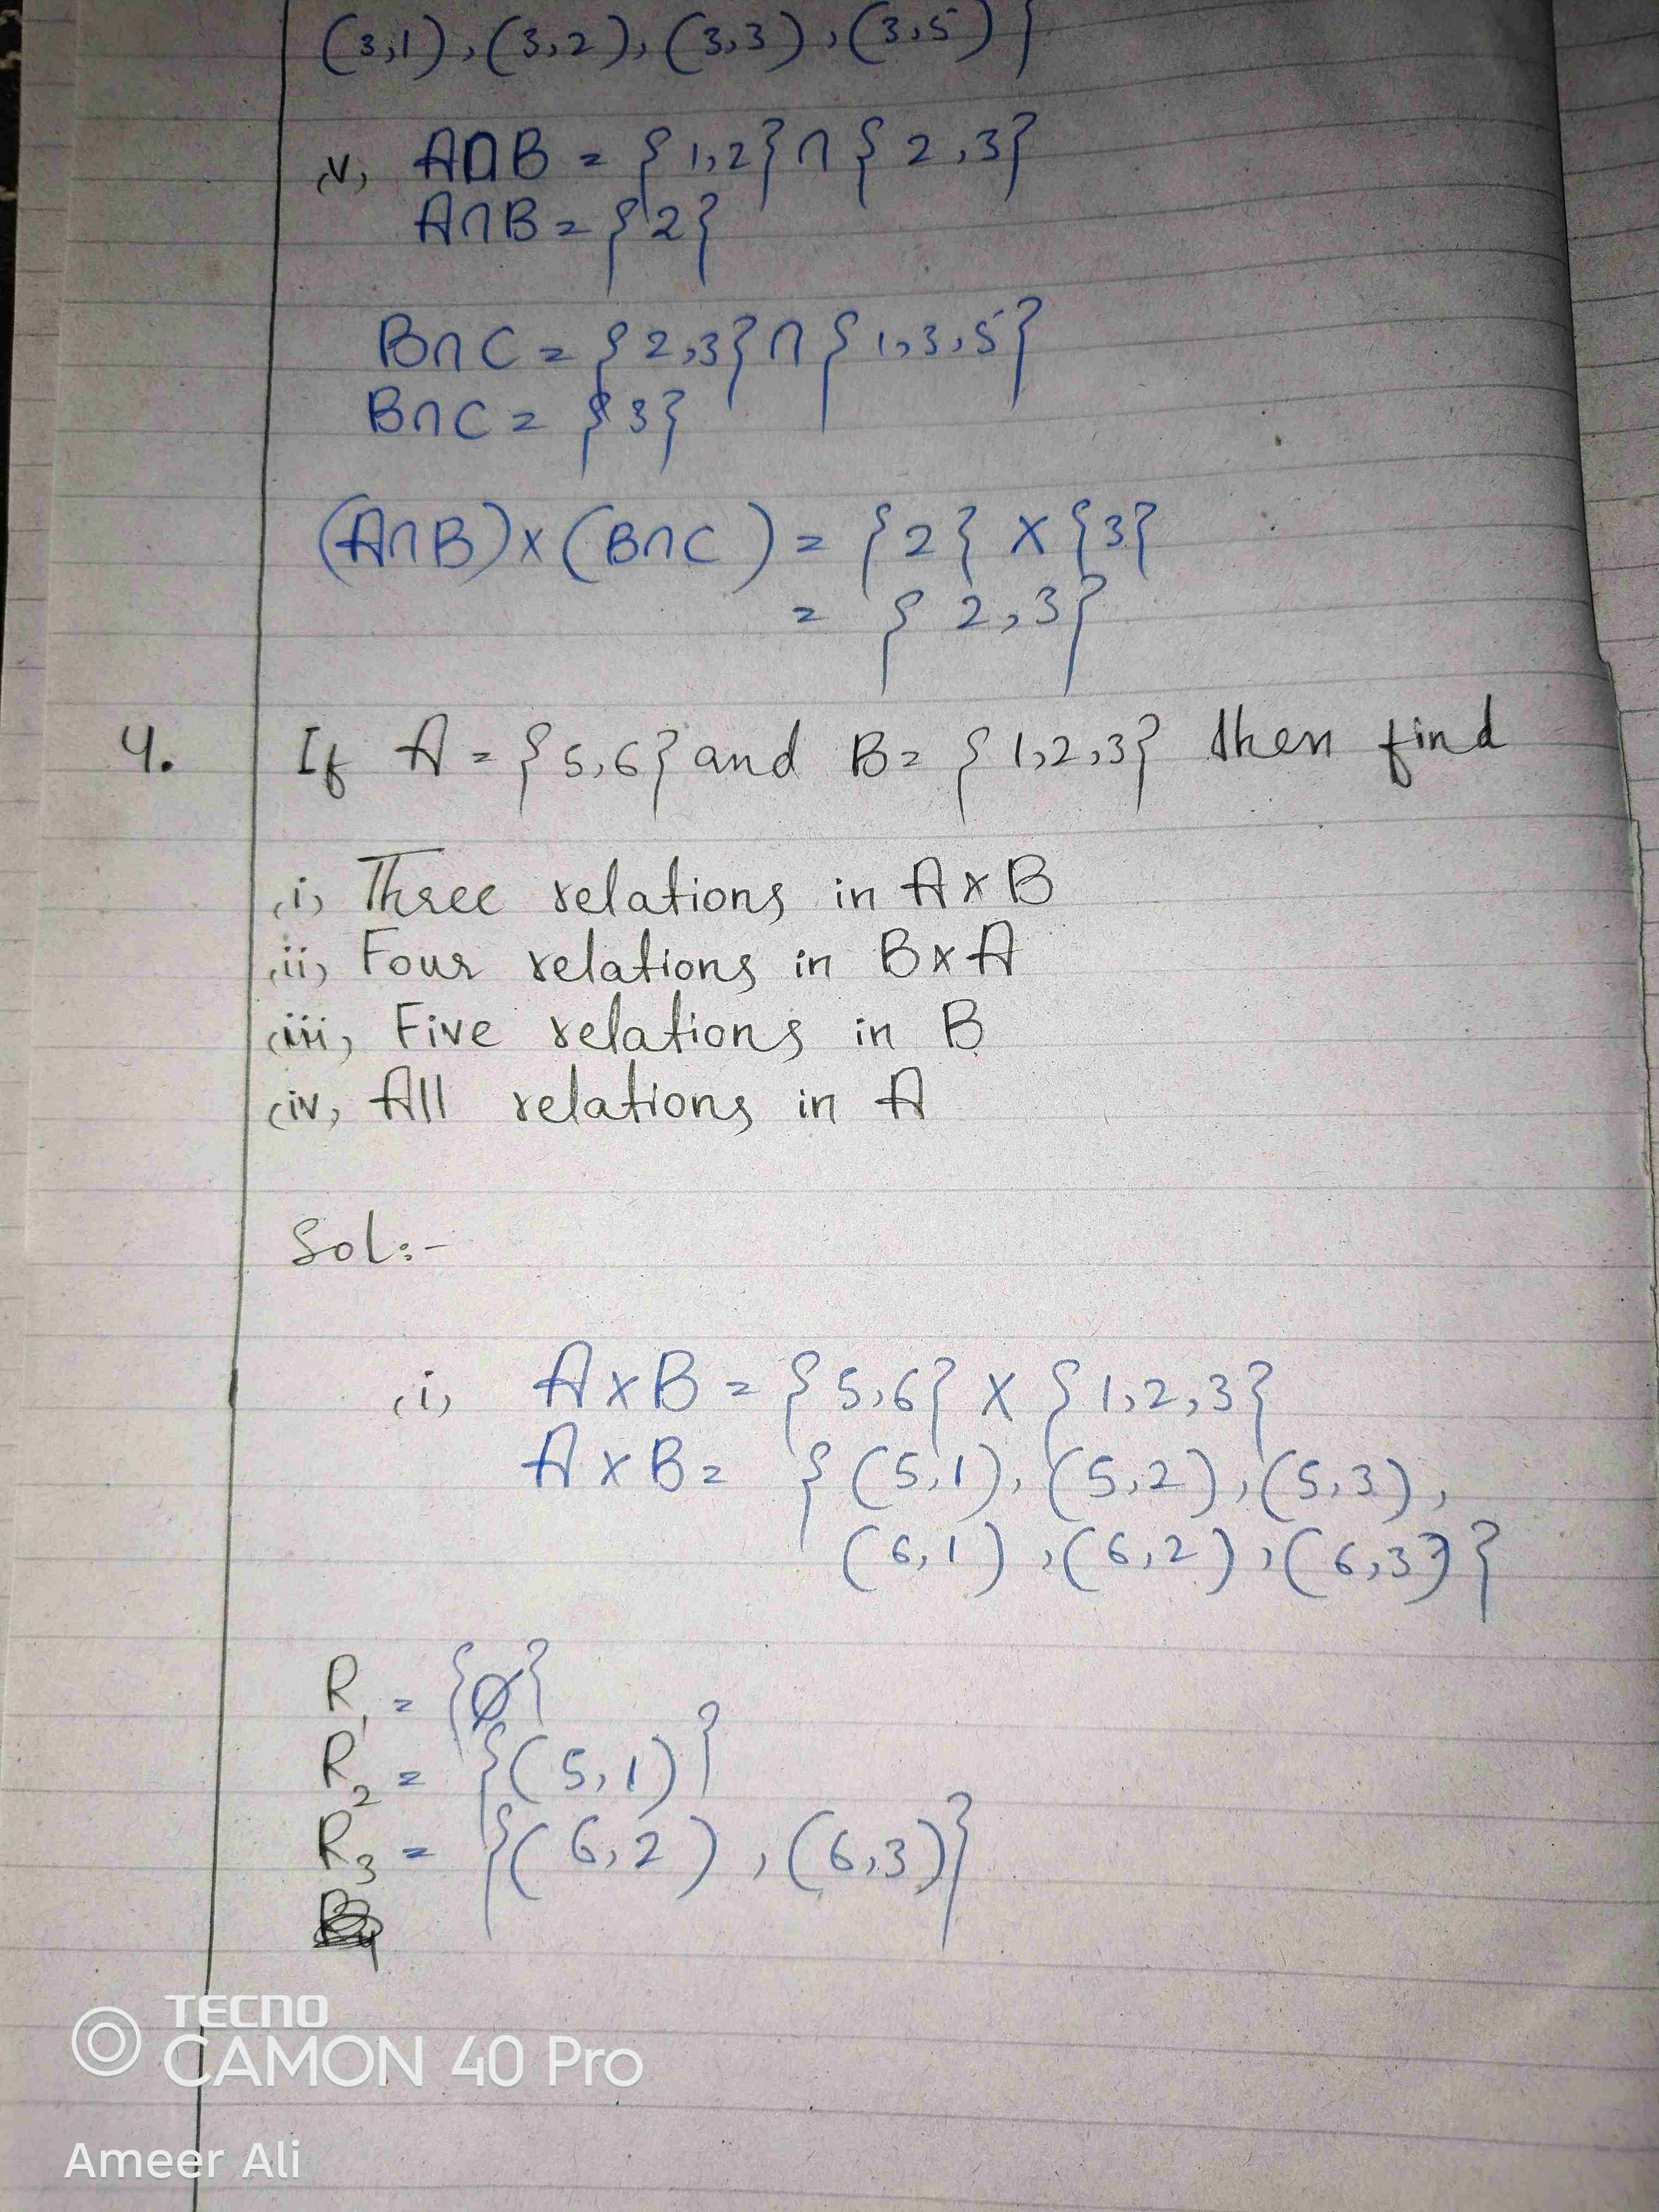 (3,1), (3,2), (3,3), (3,5)}
(v) A∩B = {1,2} ∩ {2,3}
A∩B = {2}
B∩C = {2,3} ∩ {1,3,5}
B∩C = {3}
(A∩B) × (B∩C) = {2} × {3}
= {2,3}
4. If A = {5,6} and B = {1,2,3} then find
(i) Three relations in A×B
(ii) Four relations in B×A
(iii) Five relations in B
(iv) All relations in A
Sol:-
(i) A×B = {5,6} × {1,2,3}
A×B = {(5,1), (5,2), (5,3),
(6,1), (6,2), (6,3)}
R₁ = {Ø}
R₂ = {(5,1)}
R₃ = {(6,2), (6,3)}
TECNO
CAMON 40 Pro
Ameer Ali